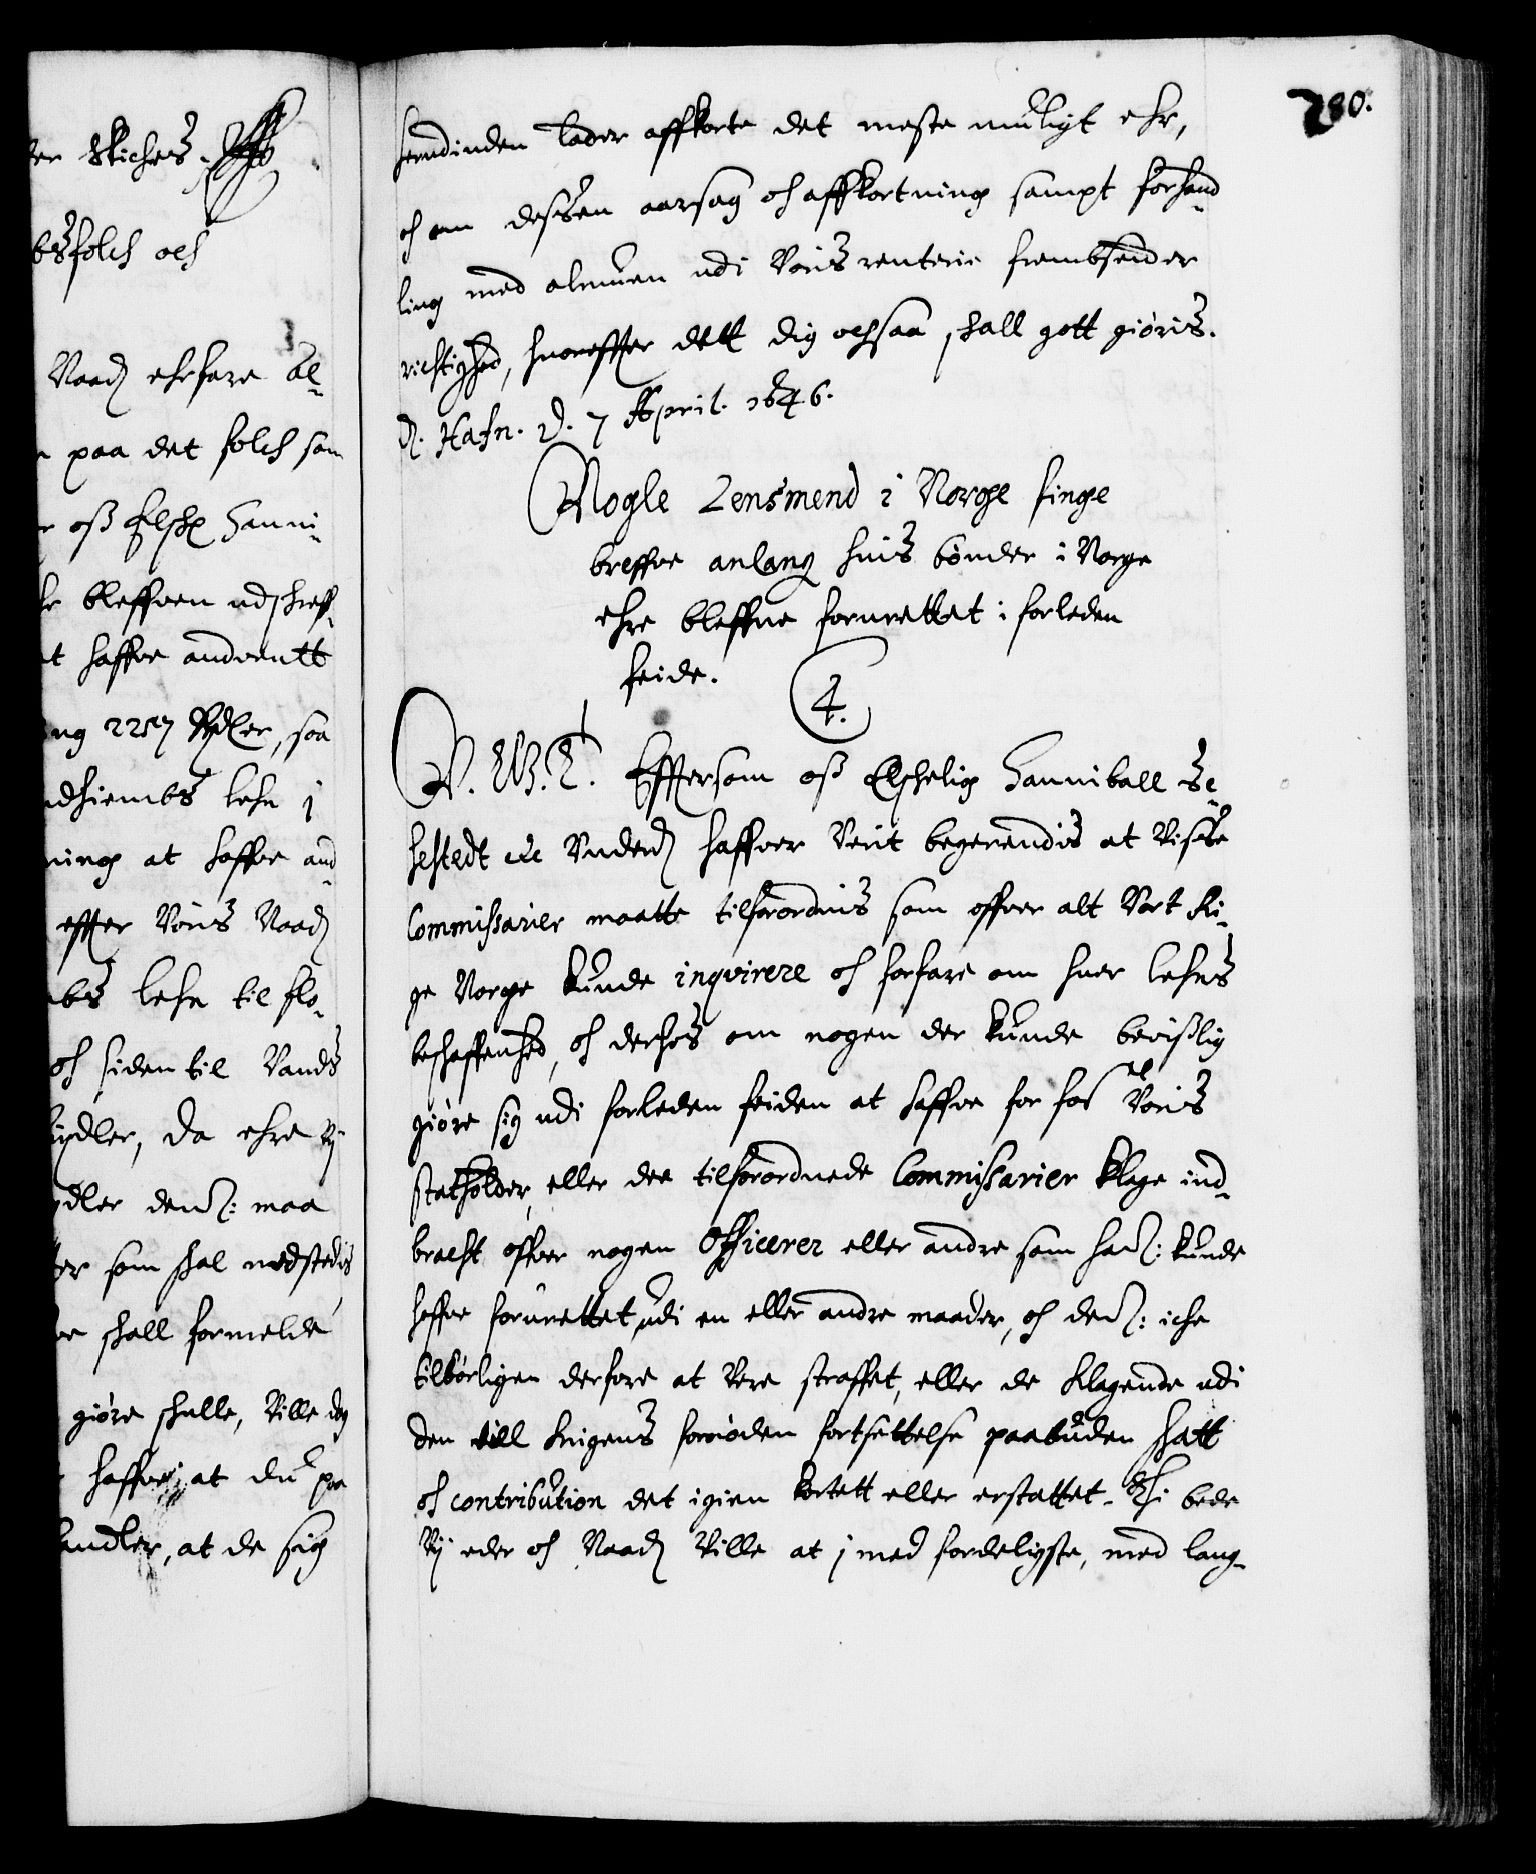 280.
er skiches.
bsfolch och
Naad: ehrfare al-
paa det folch som
oß Elsk: Hanni-
bleffuen udschreff-
t haffue anduentt
ng 2257 Rdler, saa
dhiembs lehn i
ning at haffue and-
effter Voris Naad:
bs lehn til flo-
och siden til Vands
ydler, da ehre Vj
dler dennem: maa
er som skal nedstedis
shall formelde
giøre schulle, Ville dog
haffue, at du paa
andler, at de sig
hemdinden lader affkorte det meste muligt ehr,
och om dessen aarsag och affkortning sampt forhand-
ling med almuen udi Voris renterie frembsender
richtighed, huoreffter dett dig ochsaa shall gott giøris.
D. Hafn. d. 7 April. 1646.
Nogle Lensmend i Norge finge
breffue anlang huis bønder i Norge
ehre bleffne forurettet i forleden
feide.
4.
Efftersom oß Elschelig Hanniball Se-
hestedt etc Underd: haffuer Verit begerendis at Visse
Commissarier maatte tilforordnis som offuer alt Vort Ri-
ge Norge kunde inqvirere och forfare om huer lehns
beschaffenhed, och derhos om nogen der kunde bevißlig
giøre sig udi forleden feiden at haffue for Voris
statholder, eller dee tilforordnede Commissarier klage ind-
bracht offuer nogen Officerer eller andre som hannem: kunde
haffue forurettet, udi en eller andre maader, och dennem: iche
tilbørligen derfore at Vere straffet, eller de klagende udi
den till krigens fornøden fortsettelse paabuden skatt
och contribution det igien kortett eller erstattet. Thi bede
Vj eder och Naad: Ville at j med forderligste, med lang-